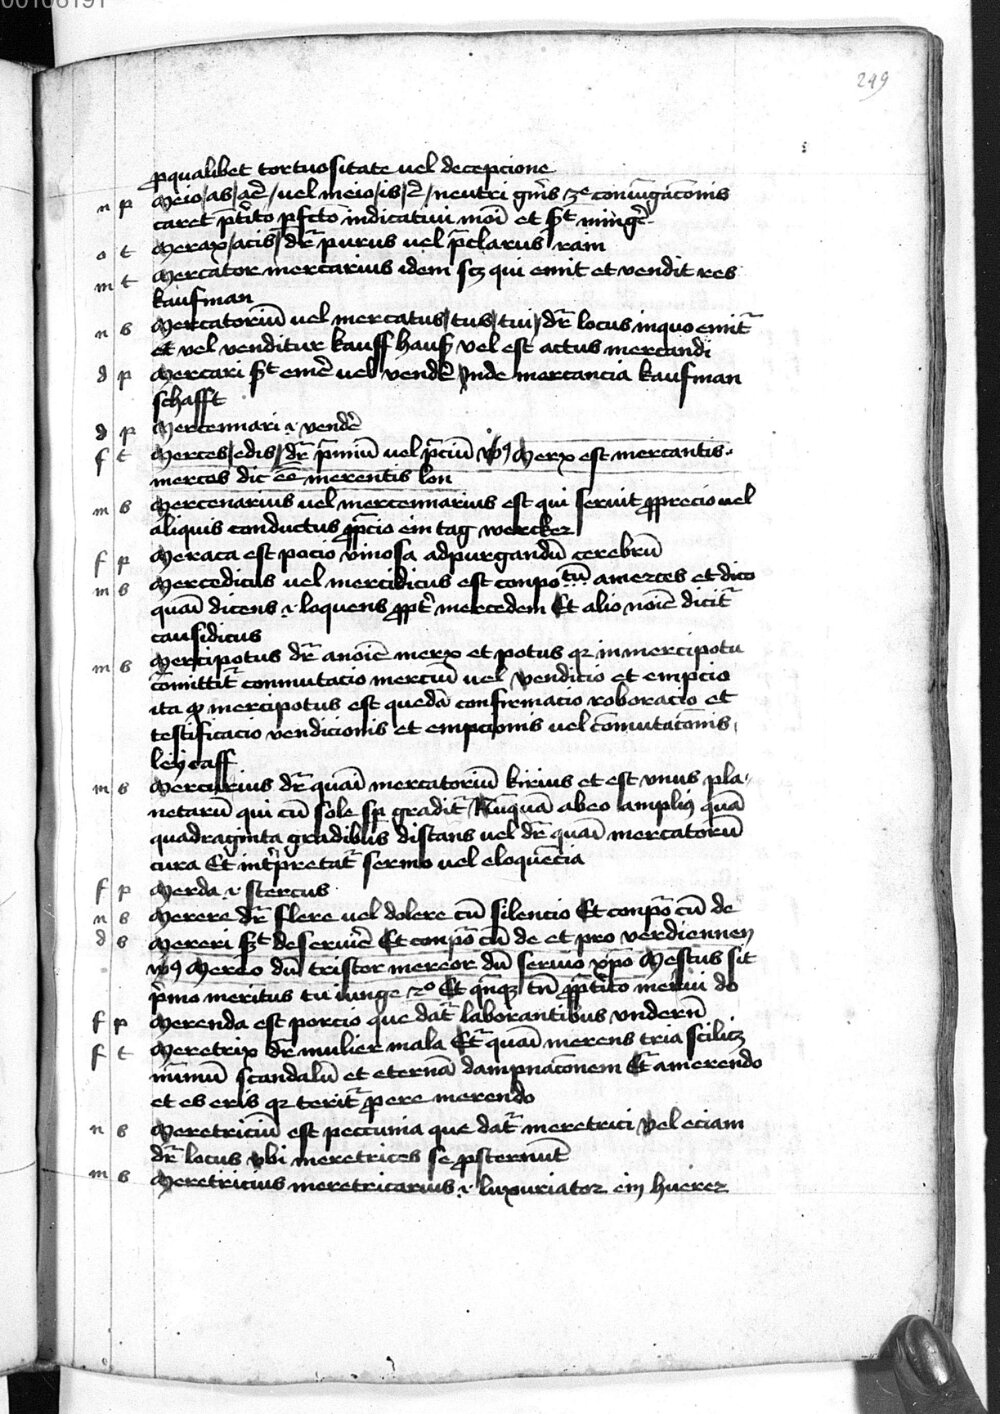 00106191
249
pqualibet tortuositate vel decepcione
n p Meio/as/aē/vel meio/is/ē/neutri gn̄is 3e coniugac̄onis
caret p̄t̄ito pfc̄to indicatiui moi et st̄ minḡe
o t Merax/acis/dr̄ purus vel p̄clarus rain
m t Mercator mercarius idem scz qui emit et vendit res
kaufman
n s Mercatoriū vel mercatus/tus/tui/dr̄ locus inquo emit̄
et vel venditur kauff haus vel est actus mercandi
d p Mercari st̄ em̄e vel vend̄e Inde mercancia kaufman
schafft
d p Mercennari .i. vend̄e
f t Merces/edis/dr̄ p̄miū vel p̄ciū v̄s9 Merx est mercantis
merces dic ēē merentis lon
m s Mercenarius vel mercennarius est qui seruit pprecio vel
aliquis conductus pp̄cio ein tag wercker
f p Meraca est pocio vinosa adpurgandū cerebrū
m s Mercedicus vel mercidicus est conpo tū amerces et dico
quāi dicens .i. loquens ppt̄ mercedem Et alio noīe dicit̄
causidicus
m s Mercipotus dr̄ anoīe merx et potus qz in mercipotu
cōmittit̄ conmutacio merciū vel vendicio et empcio
ita q mercipotus est quedā confirmacio roboracio et
testificacio vendicionis et empcionis vel cōmutac̄onis
leycaff
m s Mercurius dr̄ quāi mercatoriū kirius et est vnus pla-
netarū qui cū sole sp gradit̄ Nūquā abeo ampli9 quā
quadraginta gradibus distans vel dr̄ quāi mercatorū
cura Et int̄pretat̄ sermo vel eloquēcia
f p Merda .i. stercus
n s Merere dr̄ flere vel dolere cū silencio Et conpo cū de
d s Mereri st̄ deserui̅e Et conpo cū de et pro verdiennen
v̄s9 Mereo dū tristor mereor dū seruio xp̄o Mestus sit
p̄mo meritus tu iunge 2o Et q̄nqz tn̄ pp̄t̄ito merui do
f p Merenda est porcio que dat̄ laborantibus vndern̄
f t Meretrix dr̄ mulier mala Et̄ quāi merens tria scilicz
nūmū scandalū et eternā dampnac̄onem Et̄ amerendo
et es eris qz terit̄ p ere merendo
n s Meretriciū est peccunia que dat̄ meretrici vel eciam
dr̄ locus vbi meretrices se psternūt
m s Meretricius meretricarius .i. luxuriator ein huerer